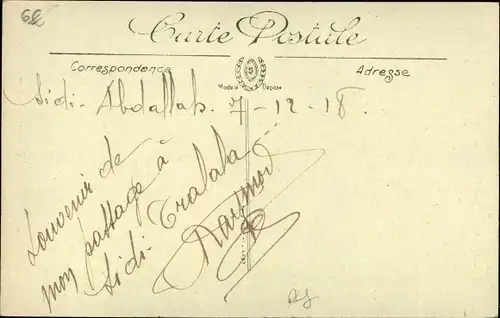 Carte Postale
Correspondance
Adresse
Modèle Déposé
Sidi-Abdallah. 7-12-18.
Souvenir de
mon passage à
Sidi-Tralala
Raymond